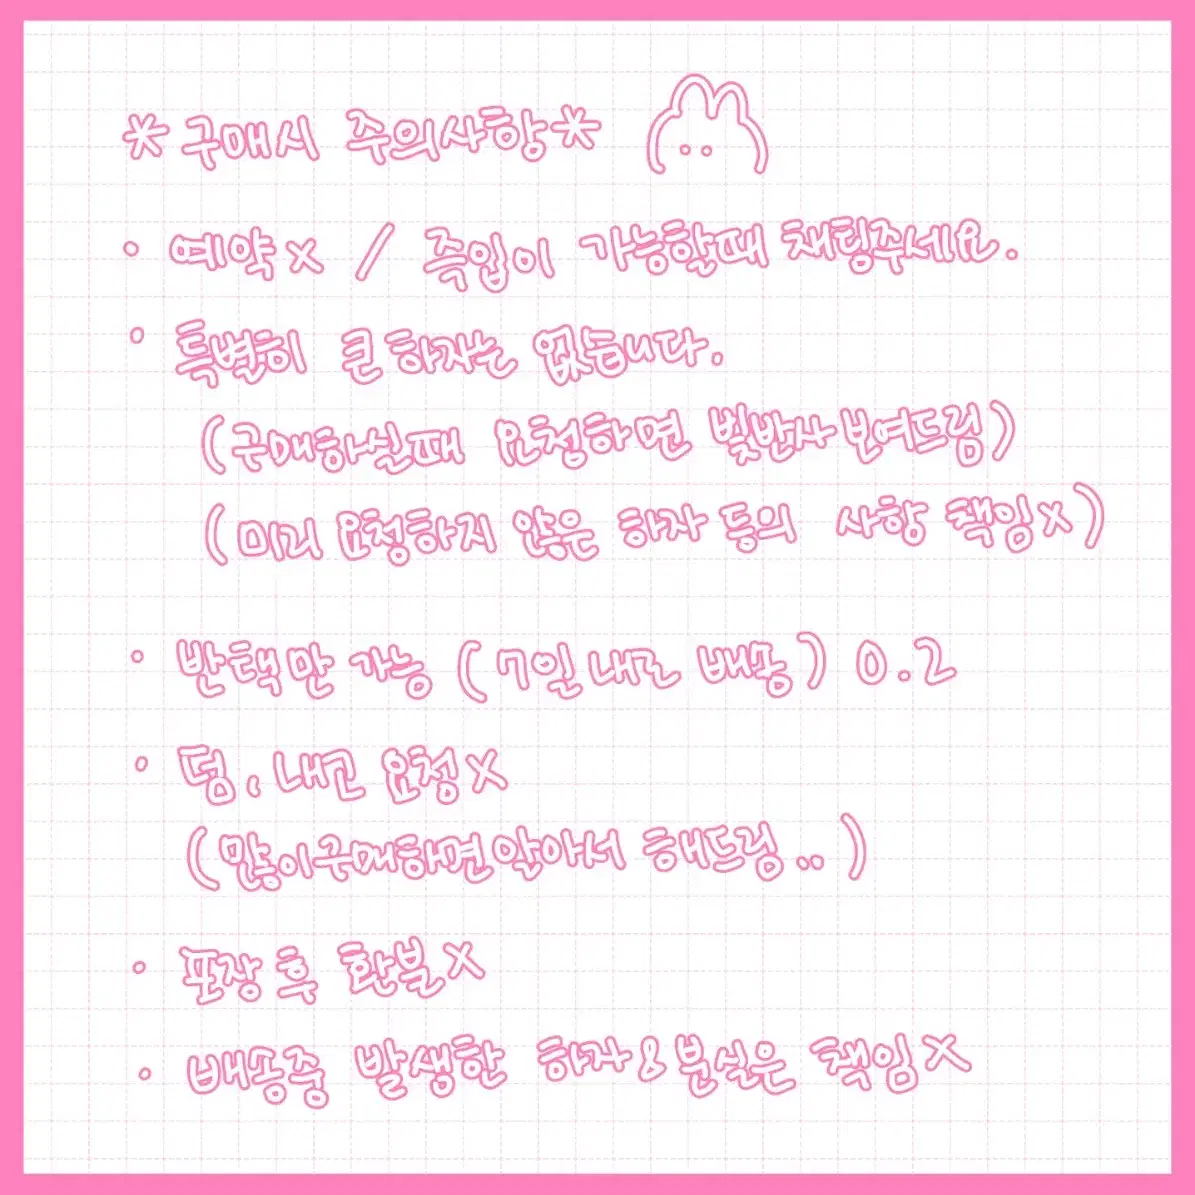 *구매시 주의사항*
· 예약x / 즉입이 가능할때 채팅주세요.
· 특별히 큰하자는 없습니다.
(구매하실때 요청하면 빛반사 보여드림)
(미리 요청하지 않은 하자 등의 사항 책임x)
· 반택만 가능 (7일내로 배송) 0.2
· 덤, 내고 요청x
(많이구매하면알아서 해드링..)
· 포장 후 환불x
· 배송중 발생한 하자&분실은 책임x